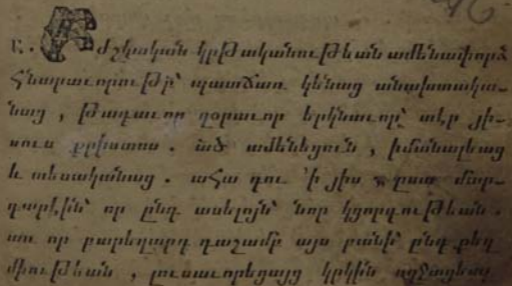 Բժշկական կրթականութեան ամենափորձ
Հնարաւորութի՛ պատճառ կենաց անախտակա-
նաց , թագաւոր զօրաւոր երկնաւոր՝ տէր յի-
սուս քրիստոս . ած ամենեցուն , իմանալեաց
և տեսականաց . ահա դու ՚ի յիս ըստ մար-
գարէին՝ որ ընդ ասելոյն՝ նոր կցորդութեան .
առ որ բարեզարդ դաշամբ այս բանի՝ ընդ քեզ
միութեան , լուսաւորեցայց կրկին